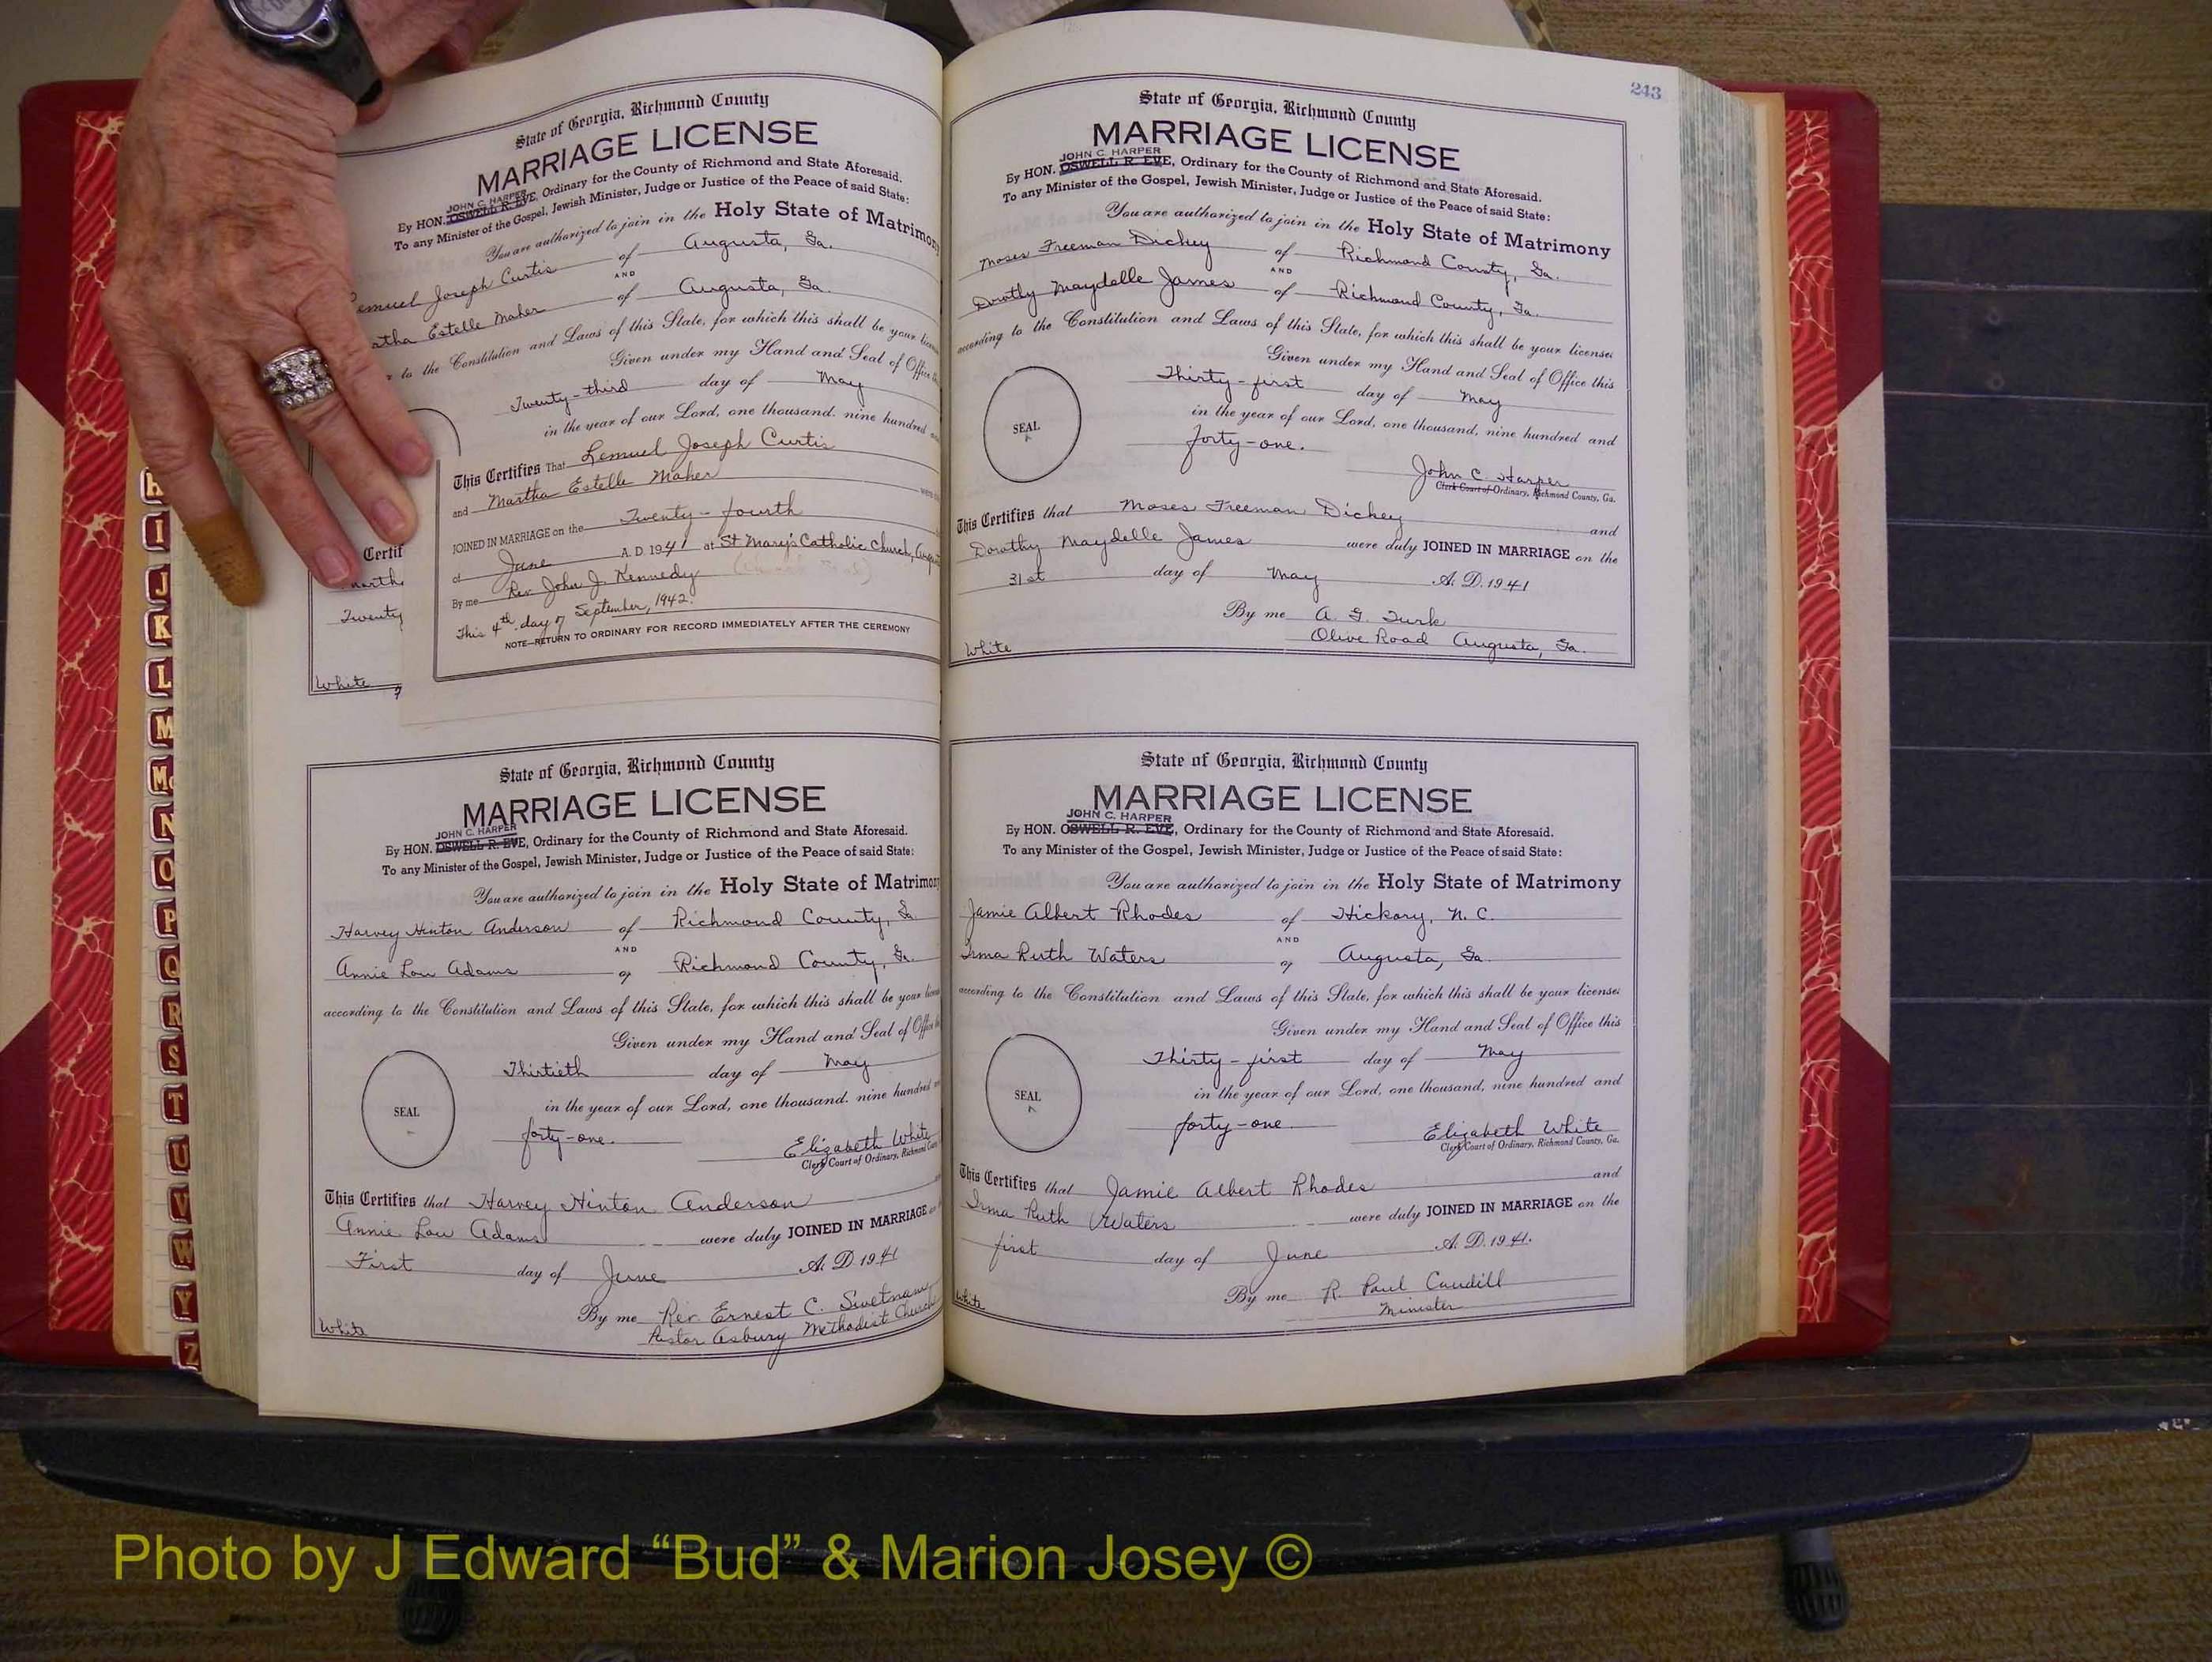 State of Georgia, Richmond County
MARRIAGE LICENSE
JOHN C. HARPER
By HON. OSWELL R. EVE, Ordinary for the County of Richmond and State Aforesaid.
To any Minister of the Gospel, Jewish Minister, Judge or Justice of the Peace of said State:
You are authorized to join in the Holy State of Matrimony
emuel Joseph Curtis of Augusta, Ga.
AND
artha Estelle Maher of Augusta, Ga.
to the Constitution and Laws of this State, for which this shall be your
Given under my Hand and Seal of Office
Twenty-third day of May
in the year of our Lord, one thousand. nine hundred
This Certifies That Lemuel Joseph Curtis
and Martha Estelle Maher
JOINED IN MARRIAGE on the Twenty-fourth
of June A. D. 1941 at St Mary's Catholic Church,
By me Rev. John J. Kennedy
This 4th day of September, 1942.
NOTE—RETURN TO ORDINARY FOR RECORD IMMEDIATELY AFTER THE CEREMONY
Certif
Twenty
White
State of Georgia, Richmond County
MARRIAGE LICENSE
JOHN C. HARPER
By HON. OSWELL R. EVE, Ordinary for the County of Richmond and State Aforesaid.
To any Minister of the Gospel, Jewish Minister, Judge or Justice of the Peace of said State:
You are authorized to join in the Holy State of Matrimony
Harvey Hinton Anderson of Richmond County, Ga
AND
Annie Lou Adams of Richmond County, Ga.
according to the Constitution and Laws of this State, for which this shall be your
Given under my Hand and Seal of Office
Thirtieth day of May
SEAL
in the year of our Lord, one thousand. nine hundred
forty-one.
Elizabeth White
Clerk Court of Ordinary, Richmond
This Certifies that Harvey Hinton Anderson
Annie Lou Adams were duly JOINED IN MARRIAGE
First day of June A. D. 1941
By me Rev Ernest C. Swetnam
Pastor Asbury Methodist Church
White
243
State of Georgia, Richmond County
MARRIAGE LICENSE
JOHN C. HARPER
By HON. OSWELL R. EVE, Ordinary for the County of Richmond and State Aforesaid.
To any Minister of the Gospel, Jewish Minister, Judge or Justice of the Peace of said State:
You are authorized to join in the Holy State of Matrimony
Moses Freeman Dickey of Richmond County, Ga.
AND
Dorothy Maydelle James of Richmond County, Ga.
according to the Constitution and Laws of this State, for which this shall be your license:
Given under my Hand and Seal of Office this
Thirty-first day of May
SEAL
in the year of our Lord, one thousand, nine hundred and
forty-one.
John C. Harper
Clerk Court of Ordinary, Richmond County, Ga.
This Certifies that Moses Freeman Dickey and
Dorothy Maydelle James were duly JOINED IN MARRIAGE on the
31st day of May A. D. 1941
By me A. G. Turk
Olive Road Augusta, Ga.
White
State of Georgia, Richmond County
MARRIAGE LICENSE
JOHN C. HARPER
By HON. OSWELL R. EVE, Ordinary for the County of Richmond and State Aforesaid.
To any Minister of the Gospel, Jewish Minister, Judge or Justice of the Peace of said State:
You are authorized to join in the Holy State of Matrimony
Jamie Albert Rhodes of Hickory, N. C.
AND
Irma Ruth Waters of Augusta, Ga.
according to the Constitution and Laws of this State, for which this shall be your license:
Given under my Hand and Seal of Office this
Thirty-first day of May
SEAL
in the year of our Lord, one thousand, nine hundred and
forty-one.
Elizabeth White
Clerk Court of Ordinary, Richmond County, Ga.
This Certifies that Jamie Albert Rhodes and
Irma Ruth Waters were duly JOINED IN MARRIAGE on the
first day of June A. D. 1941.
By me R. Paul Caudill
Minister
White
H
I
J
K
L
M
Mc
N
O
P
Q
R
S
T
U
V
W
Y
Z
Photo by J Edward “Bud” & Marion Josey ©